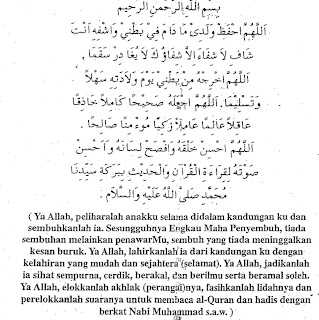 بِسْمِ اللهِ الرَّحْمٰنِ الرَّحِيْمِ
اَللّٰهُمَّ احْفَظْ وَلَدِىْ مَا دَامَ فِيْ بَطْنِيْ وَاشْفِهِ اَنْتَ
شَافٍ لَا شِفَاءَ اِلَّا شِفَاؤُكَ لَا يُغَادِرُ سَقَمًا ،
اَللّٰهُمَّ اَخْرِجْهُ مِنْ بَطْنِيْ يَوْمَ وَلَادَتِهِ سَهْلًا
وَتَسْلِيْمًا. اَللّٰهُمَّ اجْعَلْهُ صَحِيْحًا كَامِلًا حَاذِقًا
عَاقِلًا عَالِمًا عَامِلًا زَكِيًّا مُؤْمِنًا صَالِحًا .
اَللّٰهُمَّ اَحْسِنْ خَلْقَهُ وَافْصِحْ لِسَانَهُ وَاَحْسِنْ
صَوْتَهُ لِقِرَاءَةِ الْقُرْآنِ وَالْحَدِيْثِ بِبَرَكَةِ سَيِّدِنَا
مُحَمَّدٍ صَلَّى اللهُ عَلَيْهِ وَالسَّلَامُ .
( Ya Allah, peliharalah anakku selama didalam kandungan ku dan
sembuhkanlah ia. Sesungguhnya Engkau Maha Penyembuh, tiada
sembuhan melainkan penawarMu, sembuh yang tiada meninggalkan
kesan buruk. Ya Allah, lahirkanlah ia dari kandungan ku dengan
kelahiran yang mudah dan sejahtera (selamat). Ya Allah, jadikanlah
ia sihat sempurna, cerdik, berakal, dan berilmu serta beramal soleh.
Ya Allah, elokkanlah akhlak (perangai)nya, fasihkanlah lidahnya dan
perelokkanlah suaranya untuk membaca al-Quran dan hadis dengan
berkat Nabi Muhammad s.a.w. )